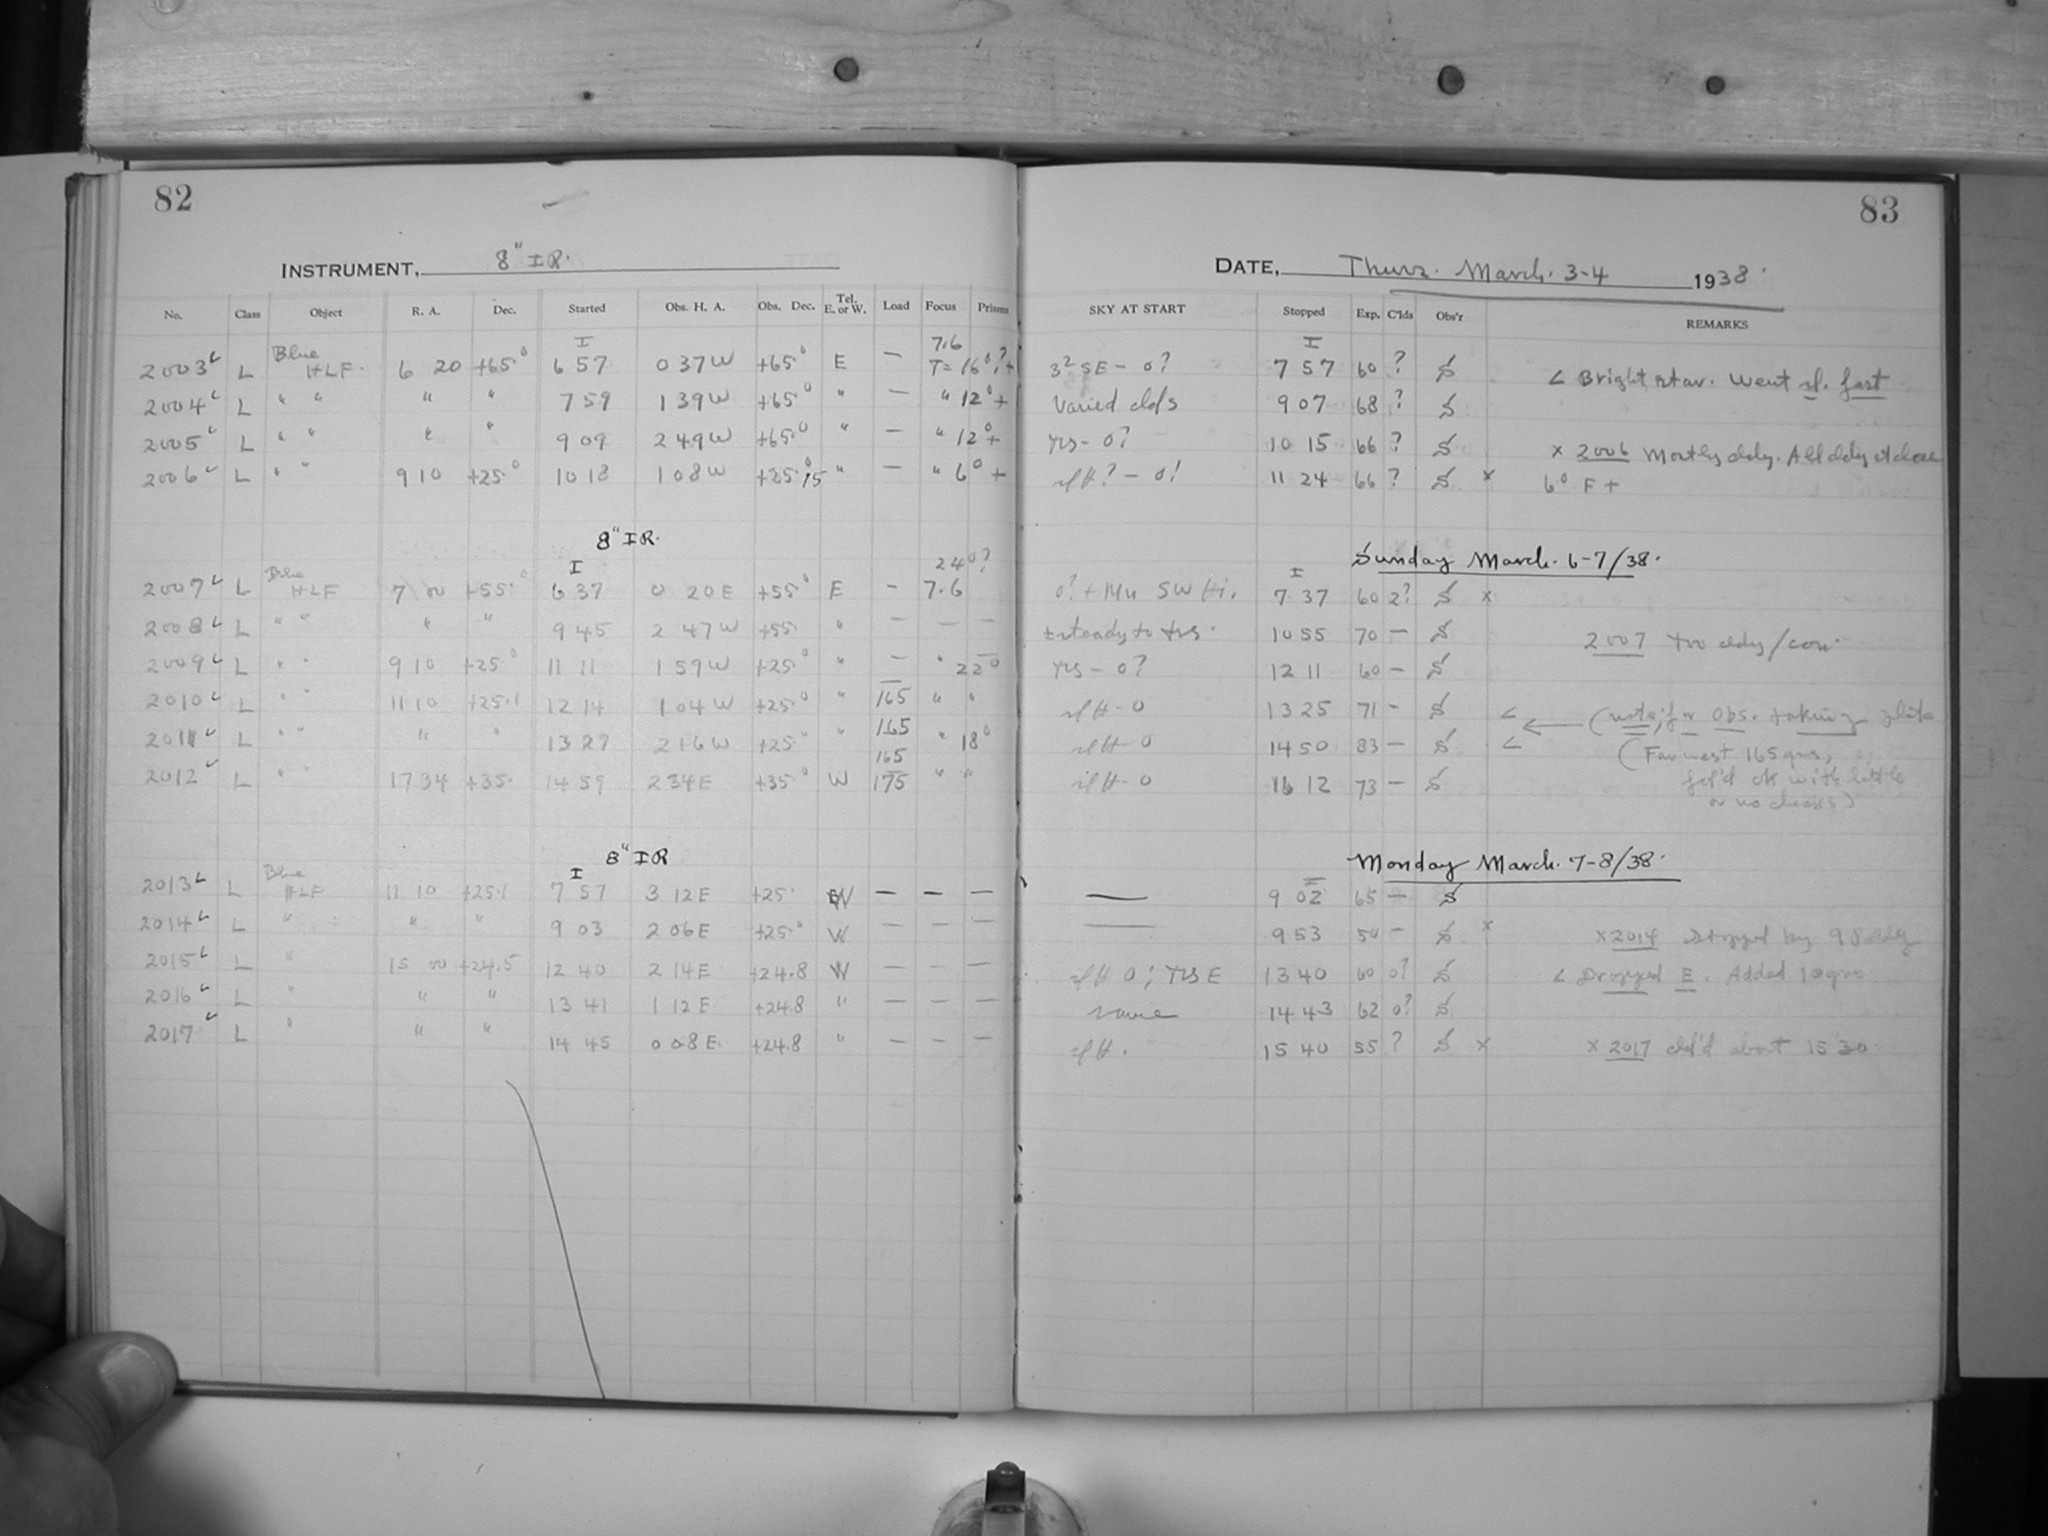 82
INSTRUMENT, 8" I R.
No. Class Object R. A. Dec. Started Obs. H. A. Obs. Dec. Tel. E. or W. Load Focus Prisms
2003 L Blue HLF. 6 20 +65.° I 6 57 0 37 W +65.° E — 7.6 T = 16°? +
2004 L " " " " 7 59 1 39 W +65.° " — " 12° +
2005 L " " " " 9 09 2 49 W +65.° " — " 12° +
2006 L " " 9 10 +25.° 10 18 1 08 W +25.° " — " 6° +
8" I R.
2007 L Blue HLF 7 00 +55.° I 6 37 0 20 E +55° E — 24°? 7.6
2008 L " " " " 9 45 2 47 W +55. " — — —
2009 L " " 9 10 +25° 11 11 1 59 W +25.° " — " 22°
2010 L " " 11 10 +25.1 12 14 1 04 W +25.° " 165 " "
2011 L " " " " 13 27 2 16 W +25° " 165 " 18°
2012 L " " 17 34 +35. 14 59 2 34 E +35.° W 165 175 " "
8" I R
2013 L Blue HLF 11 10 +25.1 I 7 57 3 12 E +25. W — — —
2014 L " " " 9 03 2 06 E +25.° W — — —
2015 L " 15 00 +24.5 12 40 2 14 E +24.8 W — — —
2016 L " " " 13 41 1 12 E +24.8 " — — —
2017 L " " " 14 45 0 08 E. +24.8 " — — —
83
DATE, Thurs. March. 3-4 1938.
SKY AT START Stopped Exp. C'lds Obs'r REMARKS
3² SE – 0? I 7 57 60 ? S < Bright star. Went sl. fast
Varied clds 9 07 68 ? S
Trs – 0? 10 15 66 ? S x 2006 Mostly cldy. All cldy at close
slH? – 0! 11 24 66 ? S x 6° F +
Sunday March. 6-7/38.
0? + Mu SW Hi. I 7 37 60 2? S x
±steady to trs. 10 55 70 — S 2007 too cldy/con.
Trs – 0? 12 11 60 — S
slH – 0 13 25 71 – S < (note; for Obs. taking plate
slH – 0 14 50 83 — S < (Far west 165 gms,
slH – 0 16 12 73 – S fol'd ok with little
or no checks)
Monday March. 7-8/38.
— 9 02 65 — S
— 9 53 50 – S x x 2014 Stopped by
slH 0; Trs E 13 40 60 0? S < Dropped E. Added 10 gms
same 14 43 62 0? S
slH. 15 40 55 ? S x x 2017 cld'd about 15 30.